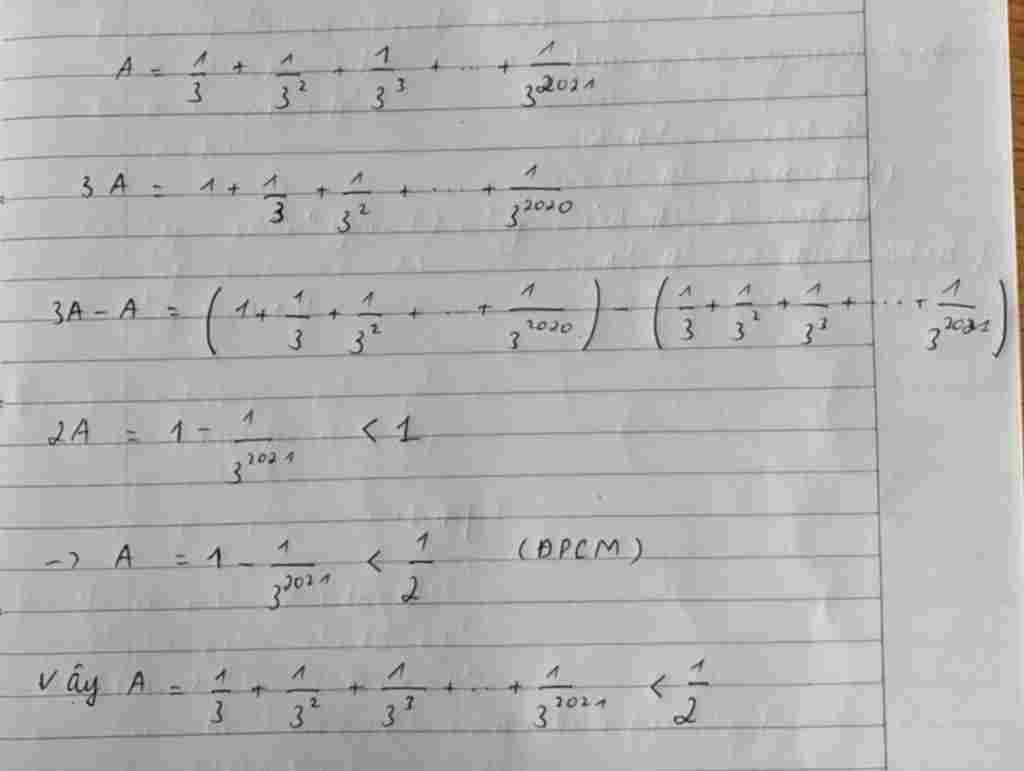 A = 1/3 + 1/3² + 1/3³ + ... + 1/3²⁰²¹
3A = 1 + 1/3 + 1/3² + ... + 1/3²⁰²⁰
3A - A = (1 + 1/3 + 1/3² + ... + 1/3²⁰²⁰) - (1/3 + 1/3² + 1/3³ + ... + 1/3²⁰²¹)
2A = 1 - 1/3²⁰²¹ < 1
-> A = 1 - 1/3²⁰²¹ < 1/2 (ĐPCM)
Vậy A = 1/3 + 1/3² + 1/3³ + ... + 1/3²⁰²¹ < 1/2